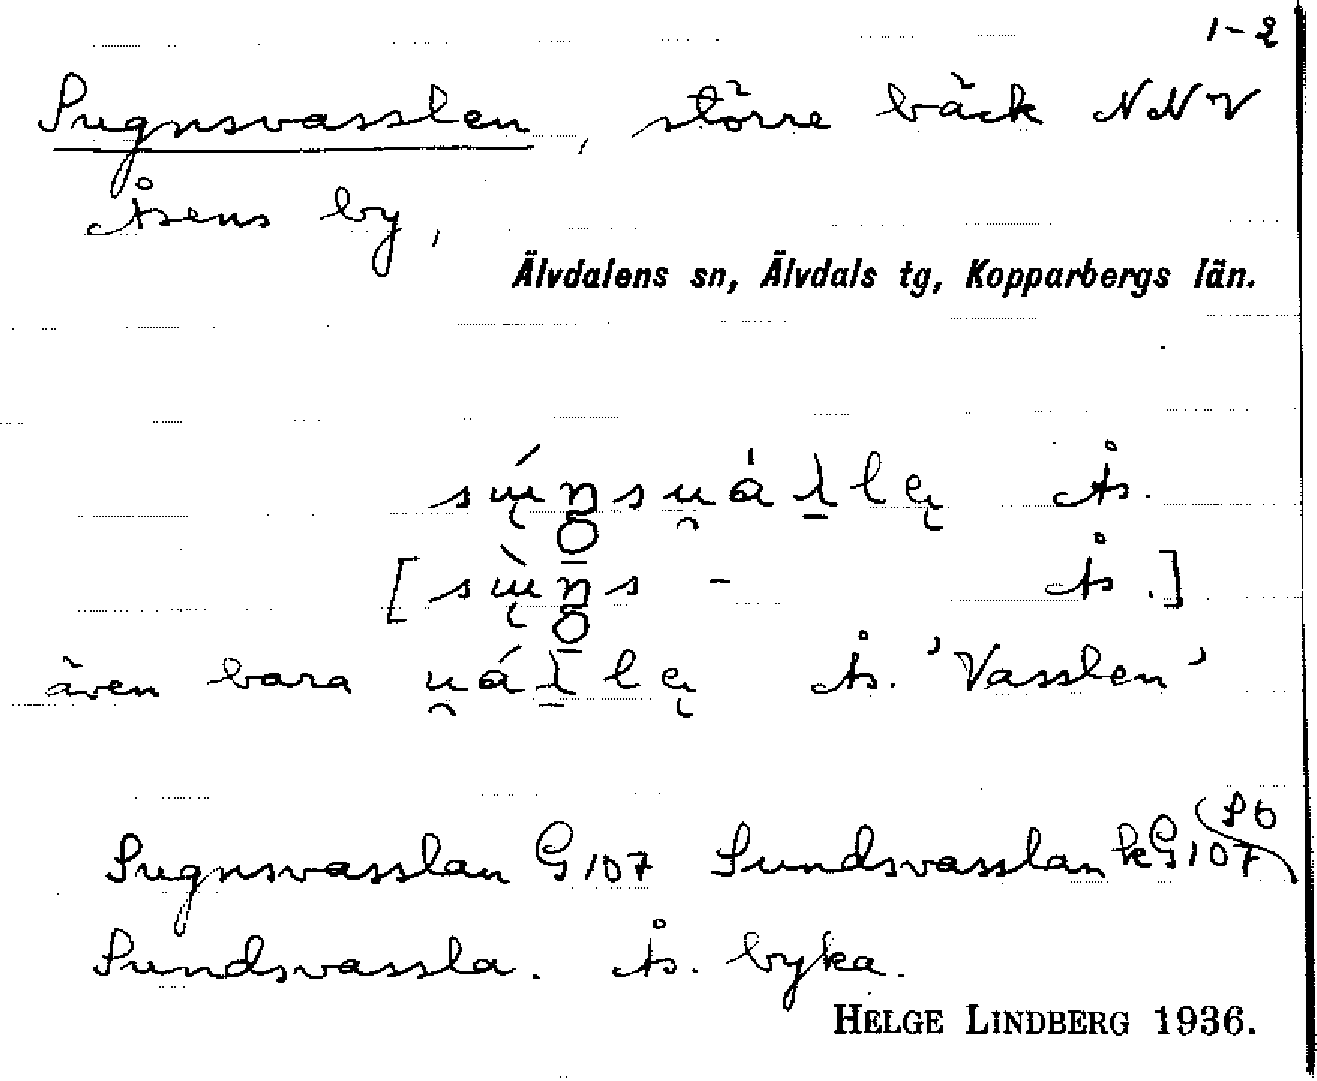 1-2
Sugnsvasslen, större bäck NNV
Åsens by,
Älvdalens sn, Älvdals tg, Kopparbergs län.
Ås.
[ - Ås.]
även bara Ås. 'Vasslen'
S6
Sugnsvasslan G107 Sundsvasslan kG107
Sundsvassla. Ås. byka.
HELGE LINDBERG 1936.